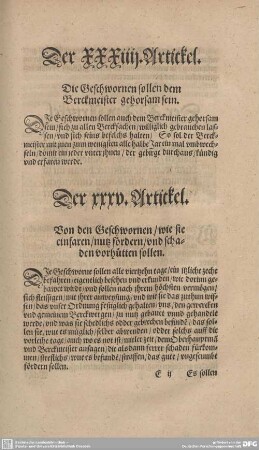 Der XXXiiij. Artickel.
Die Geschwornen sollen dem
Berckmeister gehorsam sein.
Die Geschwornen sollen auch dem Berckmeister gehorsam
sein / sich zu allen Bercksachen / williglich gebrauchen las-
sen / vnd sich seins befelichs halten / Es sol der Berck-
meister mit jnen zum wenigsten alle halbe Jar ein mal vmbwech-
seln / domit ein jeder vnter jhnen / der gebirge durchaus / kündig
vnd erfaren werde.
Der xxxv. Artickel.
Von den Geschwornen / wie sie
einfaren / nutz fördern / vnd scha-
den vorhütten sollen.
Die Geschworne sollen alle viertzehn tage / ein itzliche zeche
befahren / eigentlich besehen vnd erkunden / wie dorinn ge-
bawet wirdt / vnd sollen nach jhrem höchsten vermögen /
sich fleissigen / mit jhrer anweysung / vnd wo sie das zuthun wis-
sen / das vnser Ordnung festiglich gehalten / vns / den gewercken
vnd gemeinem Berckwerge / zu nutz gebawet vnnd gehandelt
werde / vnd was sie schedlichs odder gebrechen befinde / das sol-
len sie, wo es müglich / selber abwenden / odder solchs auff die
vorleihe tage / auch wo es not ist / mitler zeit / dem Oberhauptma
vnd Berckmeister ansagen / die als dann ferrer schaden fürkom-
men / streflichs / wue es befunde / straffen / das gute / vngesaumbt
fördern sollen.
E ij Es sollen